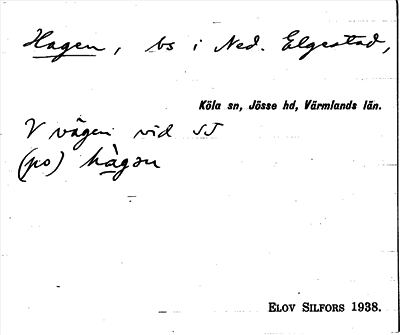 Hagen, bs i Ned. Elgestad,
Köla sn, Jösse hd, Värmlands län.
V vägen vid SJ
(po) hàgən
ELOV SILFORS 1938.